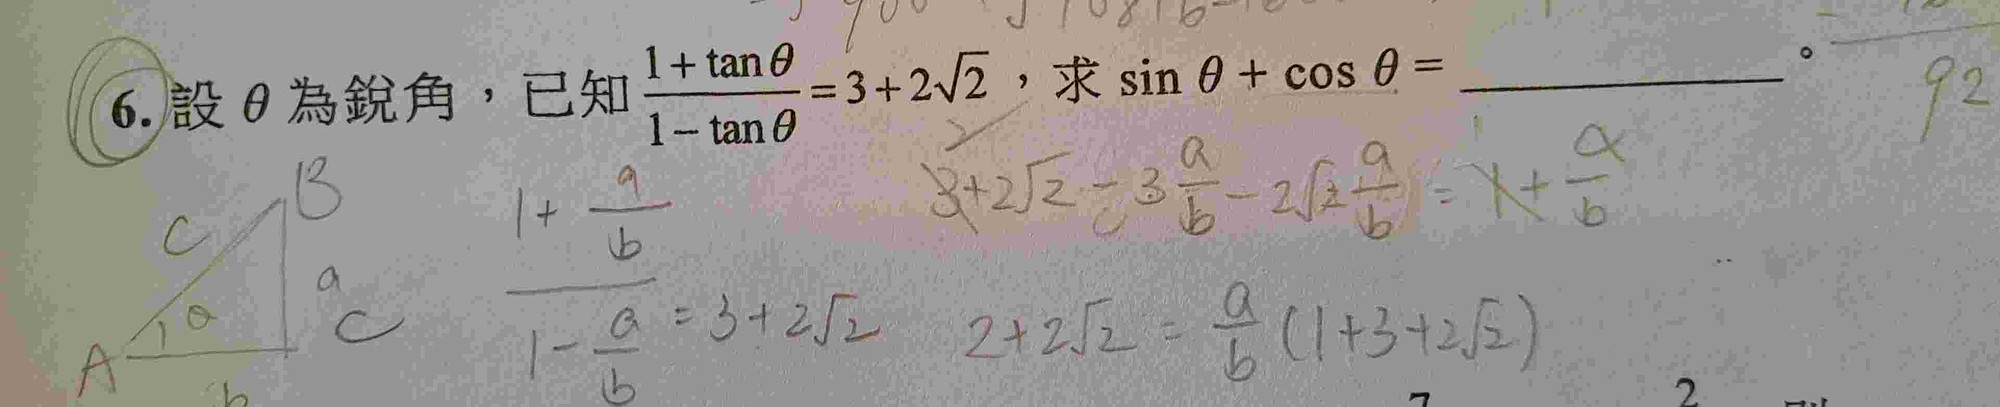 6. 設 θ 為銳角，已知 (1 + tan θ)/(1 − tan θ) = 3 + 2√2，求 sin θ + cos θ = ________。
92
B
c
a
θ
A
C
b
1 + a/b
────── = 3 + 2√2
1 − a/b
3 + 2√2 − 3 a/b − 2√2 a/b = 1 + a/b
2 + 2√2 = a/b (1 + 3 + 2√2)